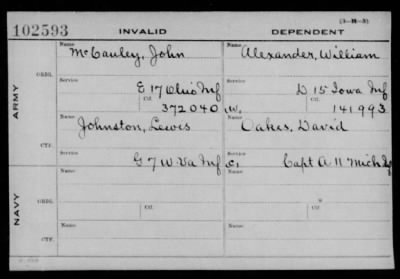 (3—H—3)
102593 INVALID DEPENDENT
Name Name
McCauley, John Alexander, William
ORIG.
Service Service
E 17 Ohio Inf D 15 Iowa Inf
Ctf. Ctf.
372040 W. 141993
ARMY
Name Name
Johnston, Lewis Oakes, David
CTF.
Service Service
G 7 W Va Inf C. Capt A 11 Mich Inf
Name Name
ORIG.
Ctf. Ctf.
NAVY
Name Name
CTF.